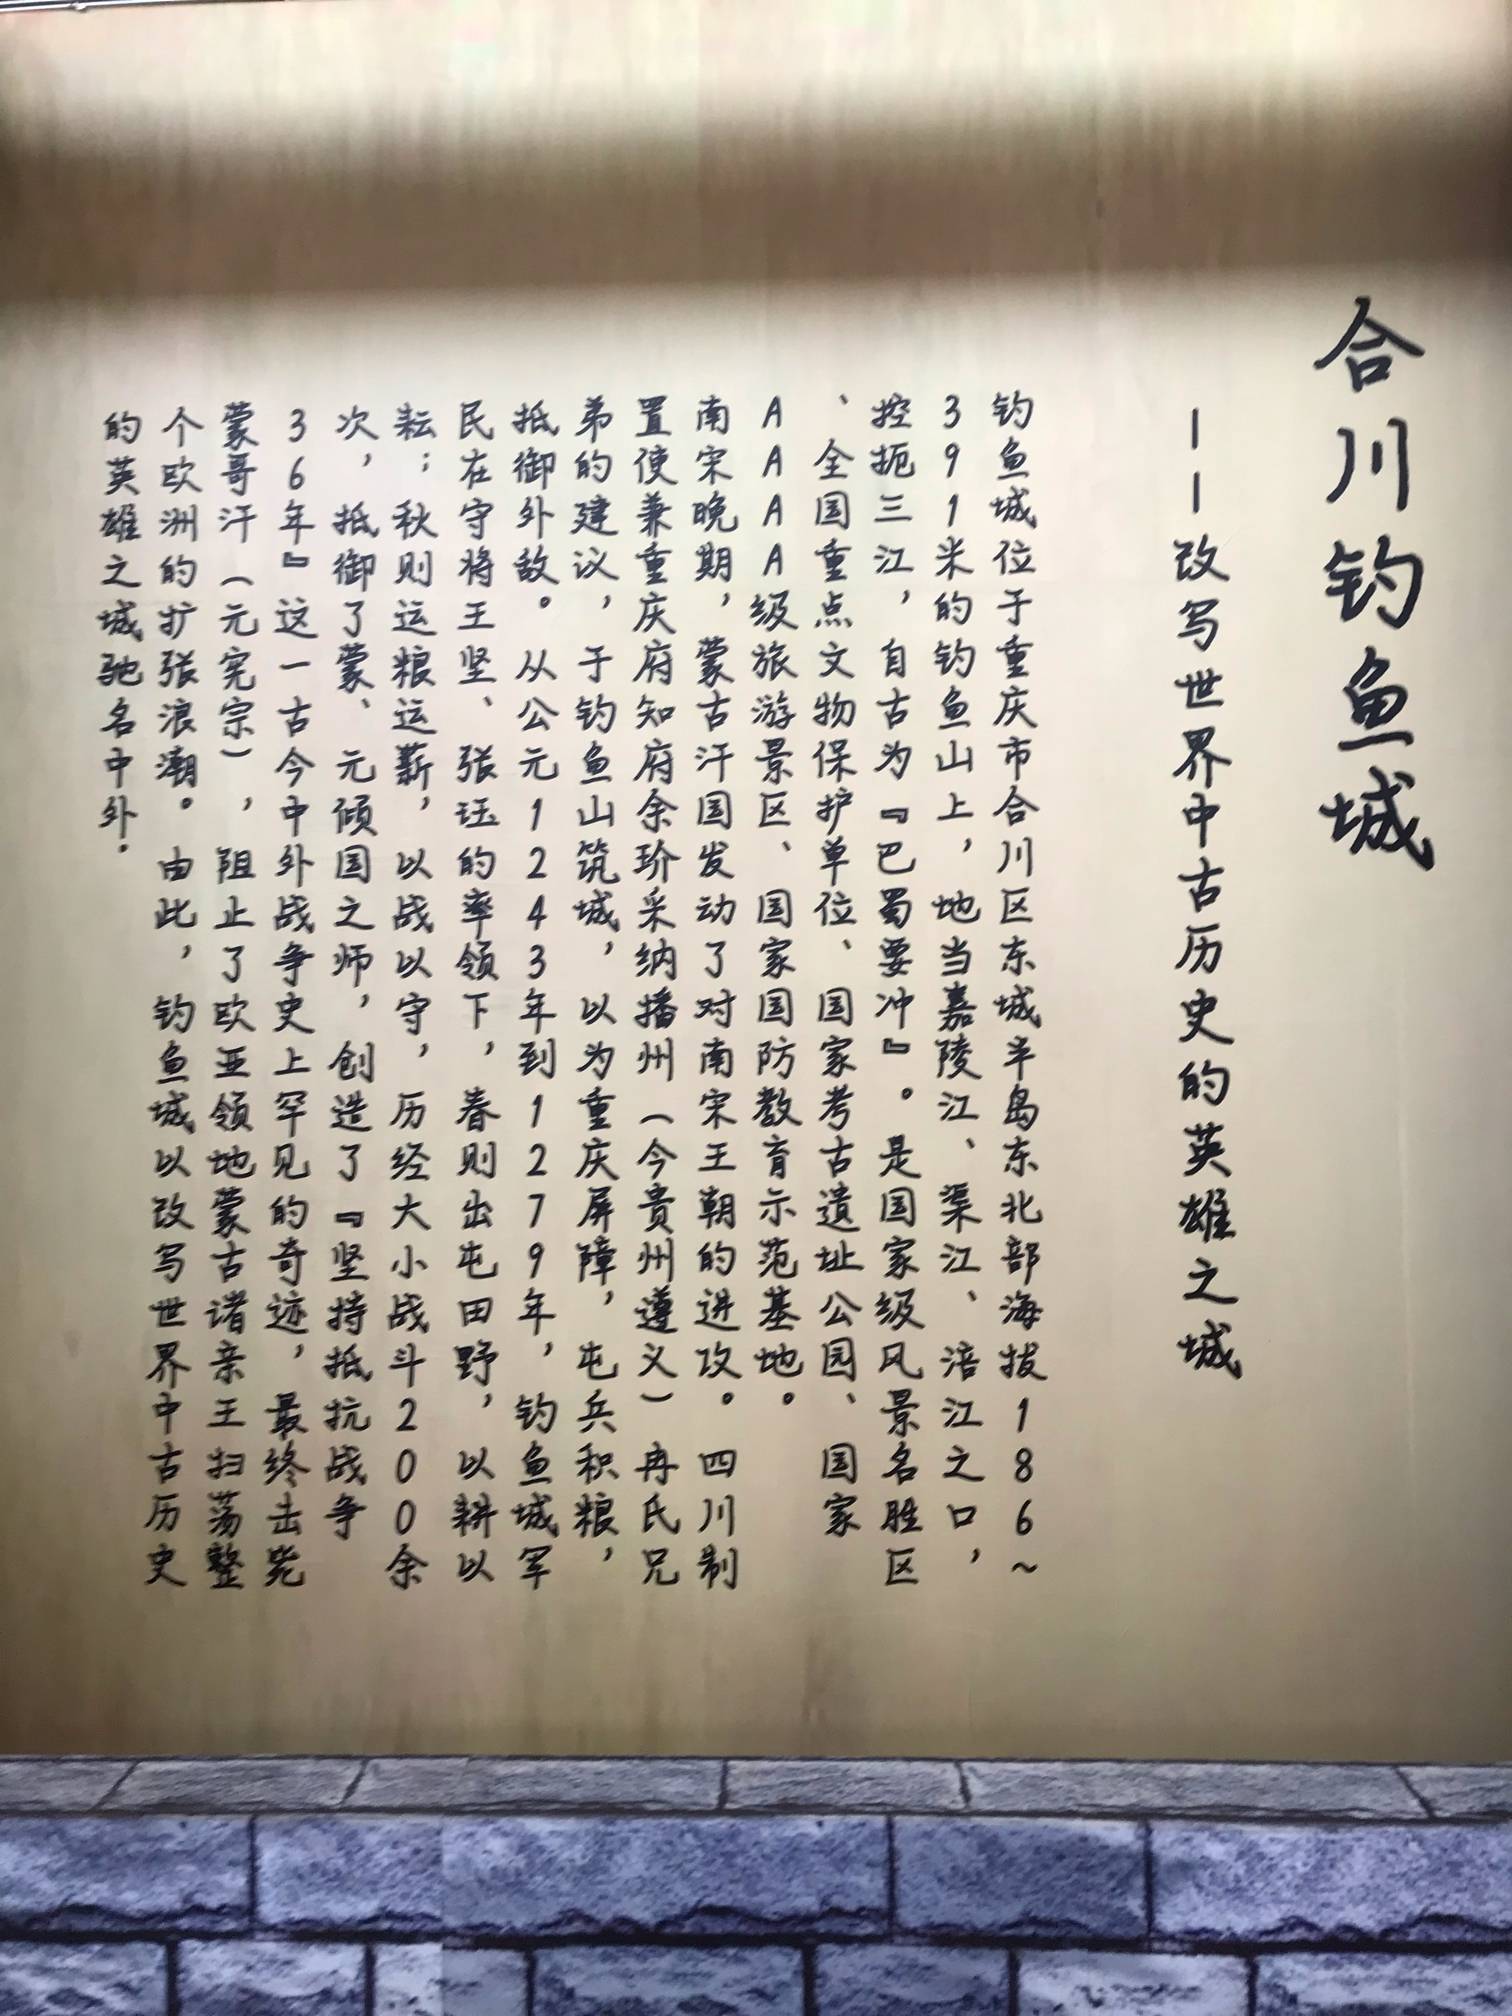 合川钓鱼城
——改写世界中古历史的英雄之城
钓鱼城位于重庆市合川区东城半岛东北部海拔186~
391米的钓鱼山上，地当嘉陵江、渠江、涪江之口，
控扼三江，自古为『巴蜀要冲』。是国家级风景名胜区
、全国重点文物保护单位、国家考古遗址公园、国家
AAAA级旅游景区、国家国防教育示范基地。
南宋晚期，蒙古汗国发动了对南宋王朝的进攻。四川制
置使兼重庆府知府余玠采纳播州（今贵州遵义）冉氏兄
弟的建议，于钓鱼山筑城，以为重庆屏障，屯兵积粮，
抵御外敌。从公元1243年到1279年，钓鱼城军
民在守将王坚、张珏的率领下，春则出屯田野，以耕以
耘；秋则运粮运薪，以战以守，历经大小战斗200余
次，抵御了蒙、元倾国之师，创造了『坚持抵抗战争
36年』这一古今中外战争史上罕见的奇迹，最终击毙
蒙哥汗（元宪宗），阻止了欧亚领地蒙古诸亲王扫荡整
个欧洲的扩张浪潮。由此，钓鱼城以改写世界中古历史
的英雄之城驰名中外.